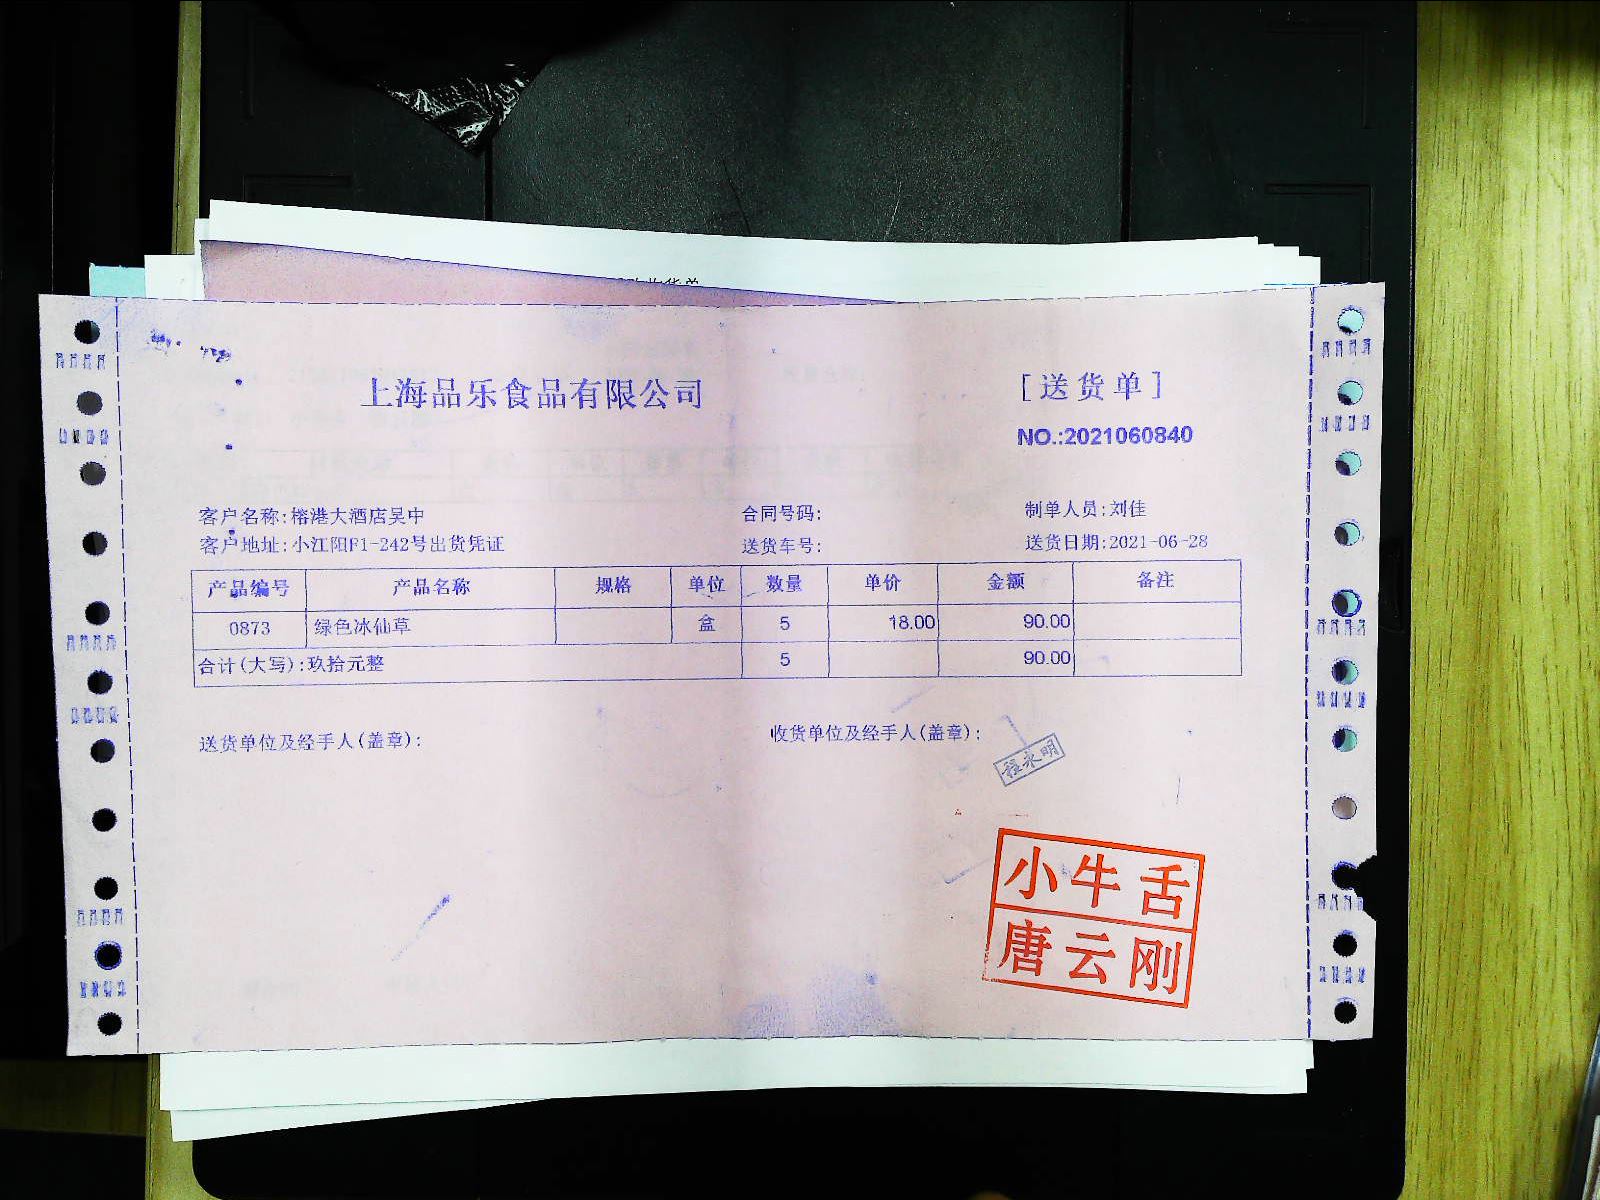 上海品乐食品有限公司
[送货单]
NO.:2021060840
客户名称:榕港大酒店吴中
合同号码:
制单人员:刘佳
客户地址:小江阳F1-242号出货凭证
送货车号:
送货日期:2021-06-28
产品编号 产品名称 规格 单位 数量 单价 金额 备注
0873 绿色冰仙草 盒 5 18.00 90.00
合计(大写):玖拾元整 5 90.00
送货单位及经手人(盖章):
收货单位及经手人(盖章):
程永明
小牛舌
唐云刚